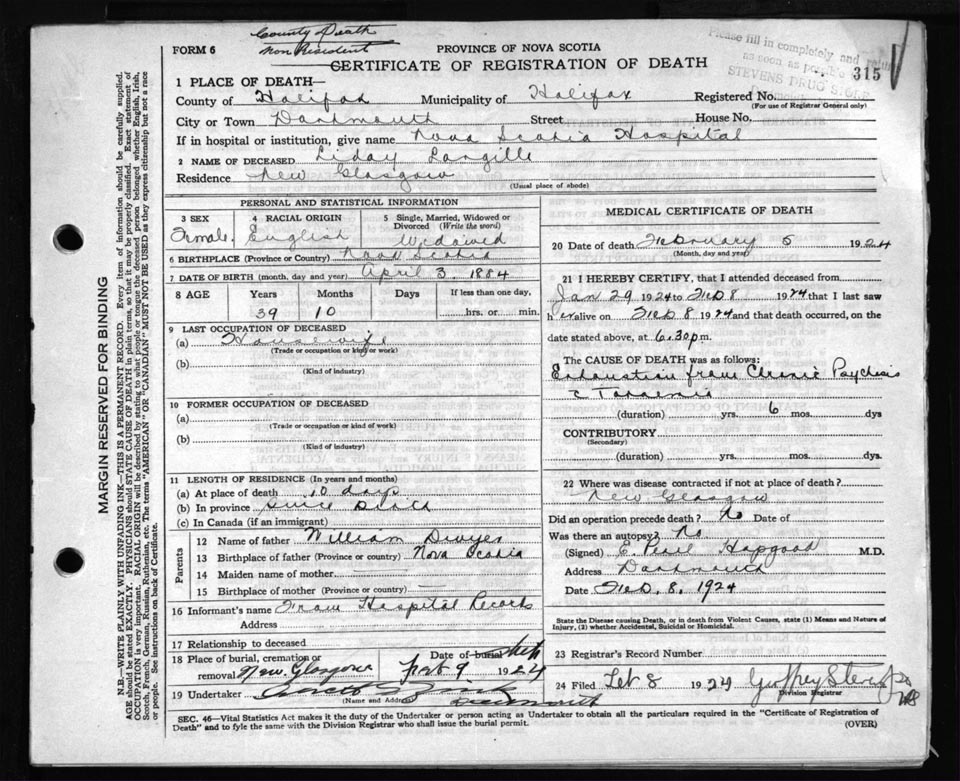 County Death
Non Resident
FORM 6
PROVINCE OF NOVA SCOTIA
CERTIFICATE OF REGISTRATION OF DEATH
Please fill in completely and
as soon as
STEVENS DRUG STORE
315
1 PLACE OF DEATH—
County of Halifax Municipality of Halifax Registered No.
(For use of Registrar General only)
City or Town Dartmouth Street House No.
If in hospital or institution, give name Nova Scotia Hospital
2 NAME OF DECEASED Liday Langille
Residence New Glasgow
(Usual place of abode)
PERSONAL AND STATISTICAL INFORMATION
3 SEX 4 RACIAL ORIGIN 5 Single, Married, Widowed or Divorced (Write the word)
Female. English Widowed
6 BIRTHPLACE (Province or Country) Nova Scotia
7 DATE OF BIRTH (month, day and year) April 3. 1884
8 AGE Years Months Days If less than one day,
39 10 hrs. or min.
9 LAST OCCUPATION OF DECEASED
(a) Housewife
(Trade or occupation or kind of work)
(b)
(Kind of industry)
10 FORMER OCCUPATION OF DECEASED
(a)
(Trade or occupation or kind of work)
(b)
(Kind of industry)
11 LENGTH OF RESIDENCE (In years and months)
(a) At place of death 10 days
(b) In province Since Birth
(c) In Canada (if an immigrant)
Parents
12 Name of father William Dwyer
13 Birthplace of father (Province or country) Nova Scotia
14 Maiden name of mother —
15 Birthplace of mother (Province or country) —
16 Informant's name From Hospital Records
Address
17 Relationship to deceased
18 Place of burial, cremation or removal New Glasgow Date of burial Feb 9 1924
19 Undertaker
(Name and Address) Dartmouth
MEDICAL CERTIFICATE OF DEATH
20 Date of death February 5 1924
(Month, day and year)
21 I HEREBY CERTIFY, that I attended deceased from
Jan 29 1924 to Feb 8 1924 that I last saw
her alive on Feb 8 1924 and that death occurred, on the
date stated above, at 6.30 p.m.
The CAUSE OF DEATH was as follows:
Exhaustion from Chronic Psychosis
(duration) yrs. 6 mos. dys
CONTRIBUTORY
(Secondary)
(duration) yrs. mos. dys.
22 Where was disease contracted if not at place of death?
New Glasgow
Did an operation precede death? No Date of
Was there an autopsy? No
(Signed) E. Pearl Hopgood M.D.
Address Dartmouth
Date Feb. 8. 1924
State the Disease causing Death, or in death from Violent Causes, state (1) Means and Nature of Injury, (2) whether Accidental, Suicidal or Homicidal.
23 Registrar's Record Number
24 Filed Feb 8 1924 Geoffrey Stevens
Division Registrar
SEC. 46—Vital Statistics Act makes it the duty of the Undertaker or person acting as Undertaker to obtain all the particulars required in the "Certificate of Registration of
Death" and to fyle the same with the Division Registrar who shall issue the burial permit. (OVER)
MARGIN RESERVED FOR BINDING
N.B.—WRITE PLAINLY WITH UNFADING INK—THIS IS A PERMANENT RECORD. Every item of information should be carefully supplied.
AGE should be stated EXACTLY. PHYSICIANS should STATE CAUSE OF DEATH in plain terms, so that it may be properly classified. Exact statement of
OCCUPATION is very important. RACIAL ORIGIN will be described by stating to what people or tongue the deceased person belonged whether English, Irish,
Scotch, French, German, Russian, Ruthenian, etc. The terms "AMERICAN" OR "CANADIAN" MUST NOT BE USED as they express citizenship but not a race
or people. See instructions on back of Certificate.